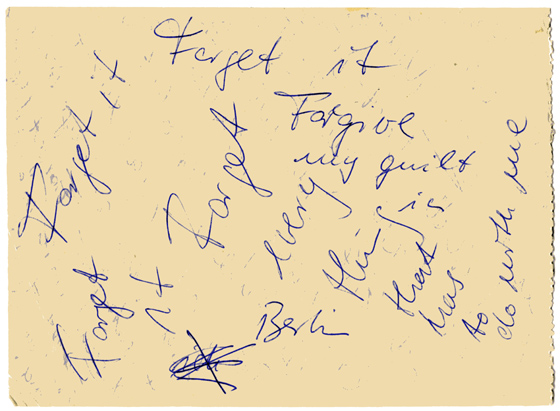 Forget it
Forgive
my guilt
Forget
every
thing is
that
has
to
do with me
Forget it
Forget
it
Berlin